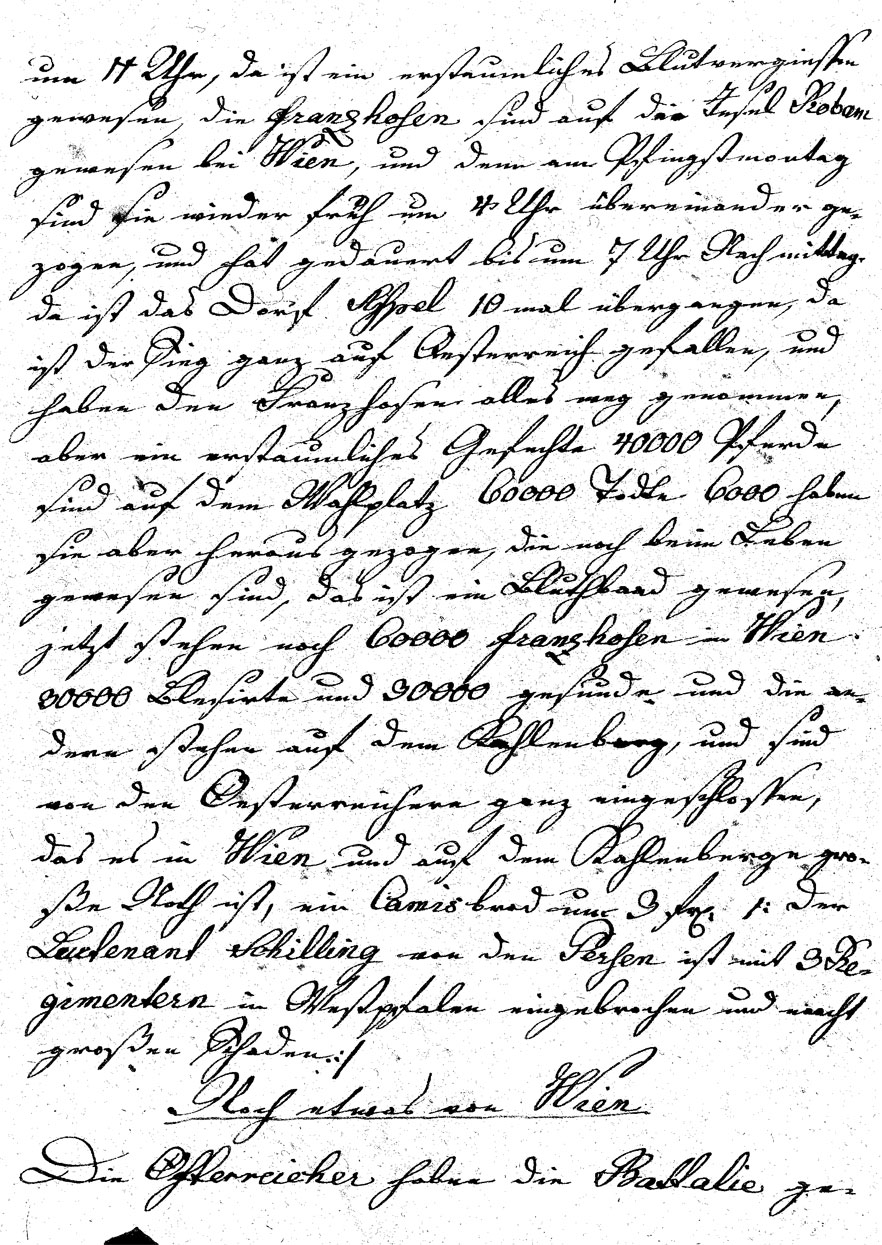 um 11 Uhr, da ist ein erstaunliches Blutvergiessen
gewesen, die Franzhosen sind auf der Insel Robau
gewesen bei Wien, und dann am Pfingstmontag
sind sie wieder früh um 4 Uhr übereinander ge-
zogen, und hat gedauert bis um 7 Uhr Nachmittag.
da ist das Dorf 10 mal übergangen, da
ist der Sieg ganz auf Oesterreich gefallen, und
haben den Franzhosen alles weg genommen,
aber ein erstaunliches Gefechte 40000 Pferde
sind auf dem Wahlplatz 60000 Todte 6000 haben
sie aber heraus gezogen, die noch beim Leben
gewesen sind, das ist ein Bluthbaad gewesen,
jetzt stehen noch 60000 Franzhosen in Wien
30000 Blesirte und 30000 gesunde und die an-
dern stehen auf dem Kahlenberg, und sind
von den Oesterreichern ganz eingeschlossen,
das es in Wien und auf dem Kahlenberge gro-
ße Noth ist, ein Camisbrod um 3 fr. /: der
Leutenant Schilling von den Persen ist mit 3 Re-
gimentern in Westpfalen eingebrochen und macht
großen Schaden :/
Noch etwas von Wien
Die Österreicher haben die Battalie ge-